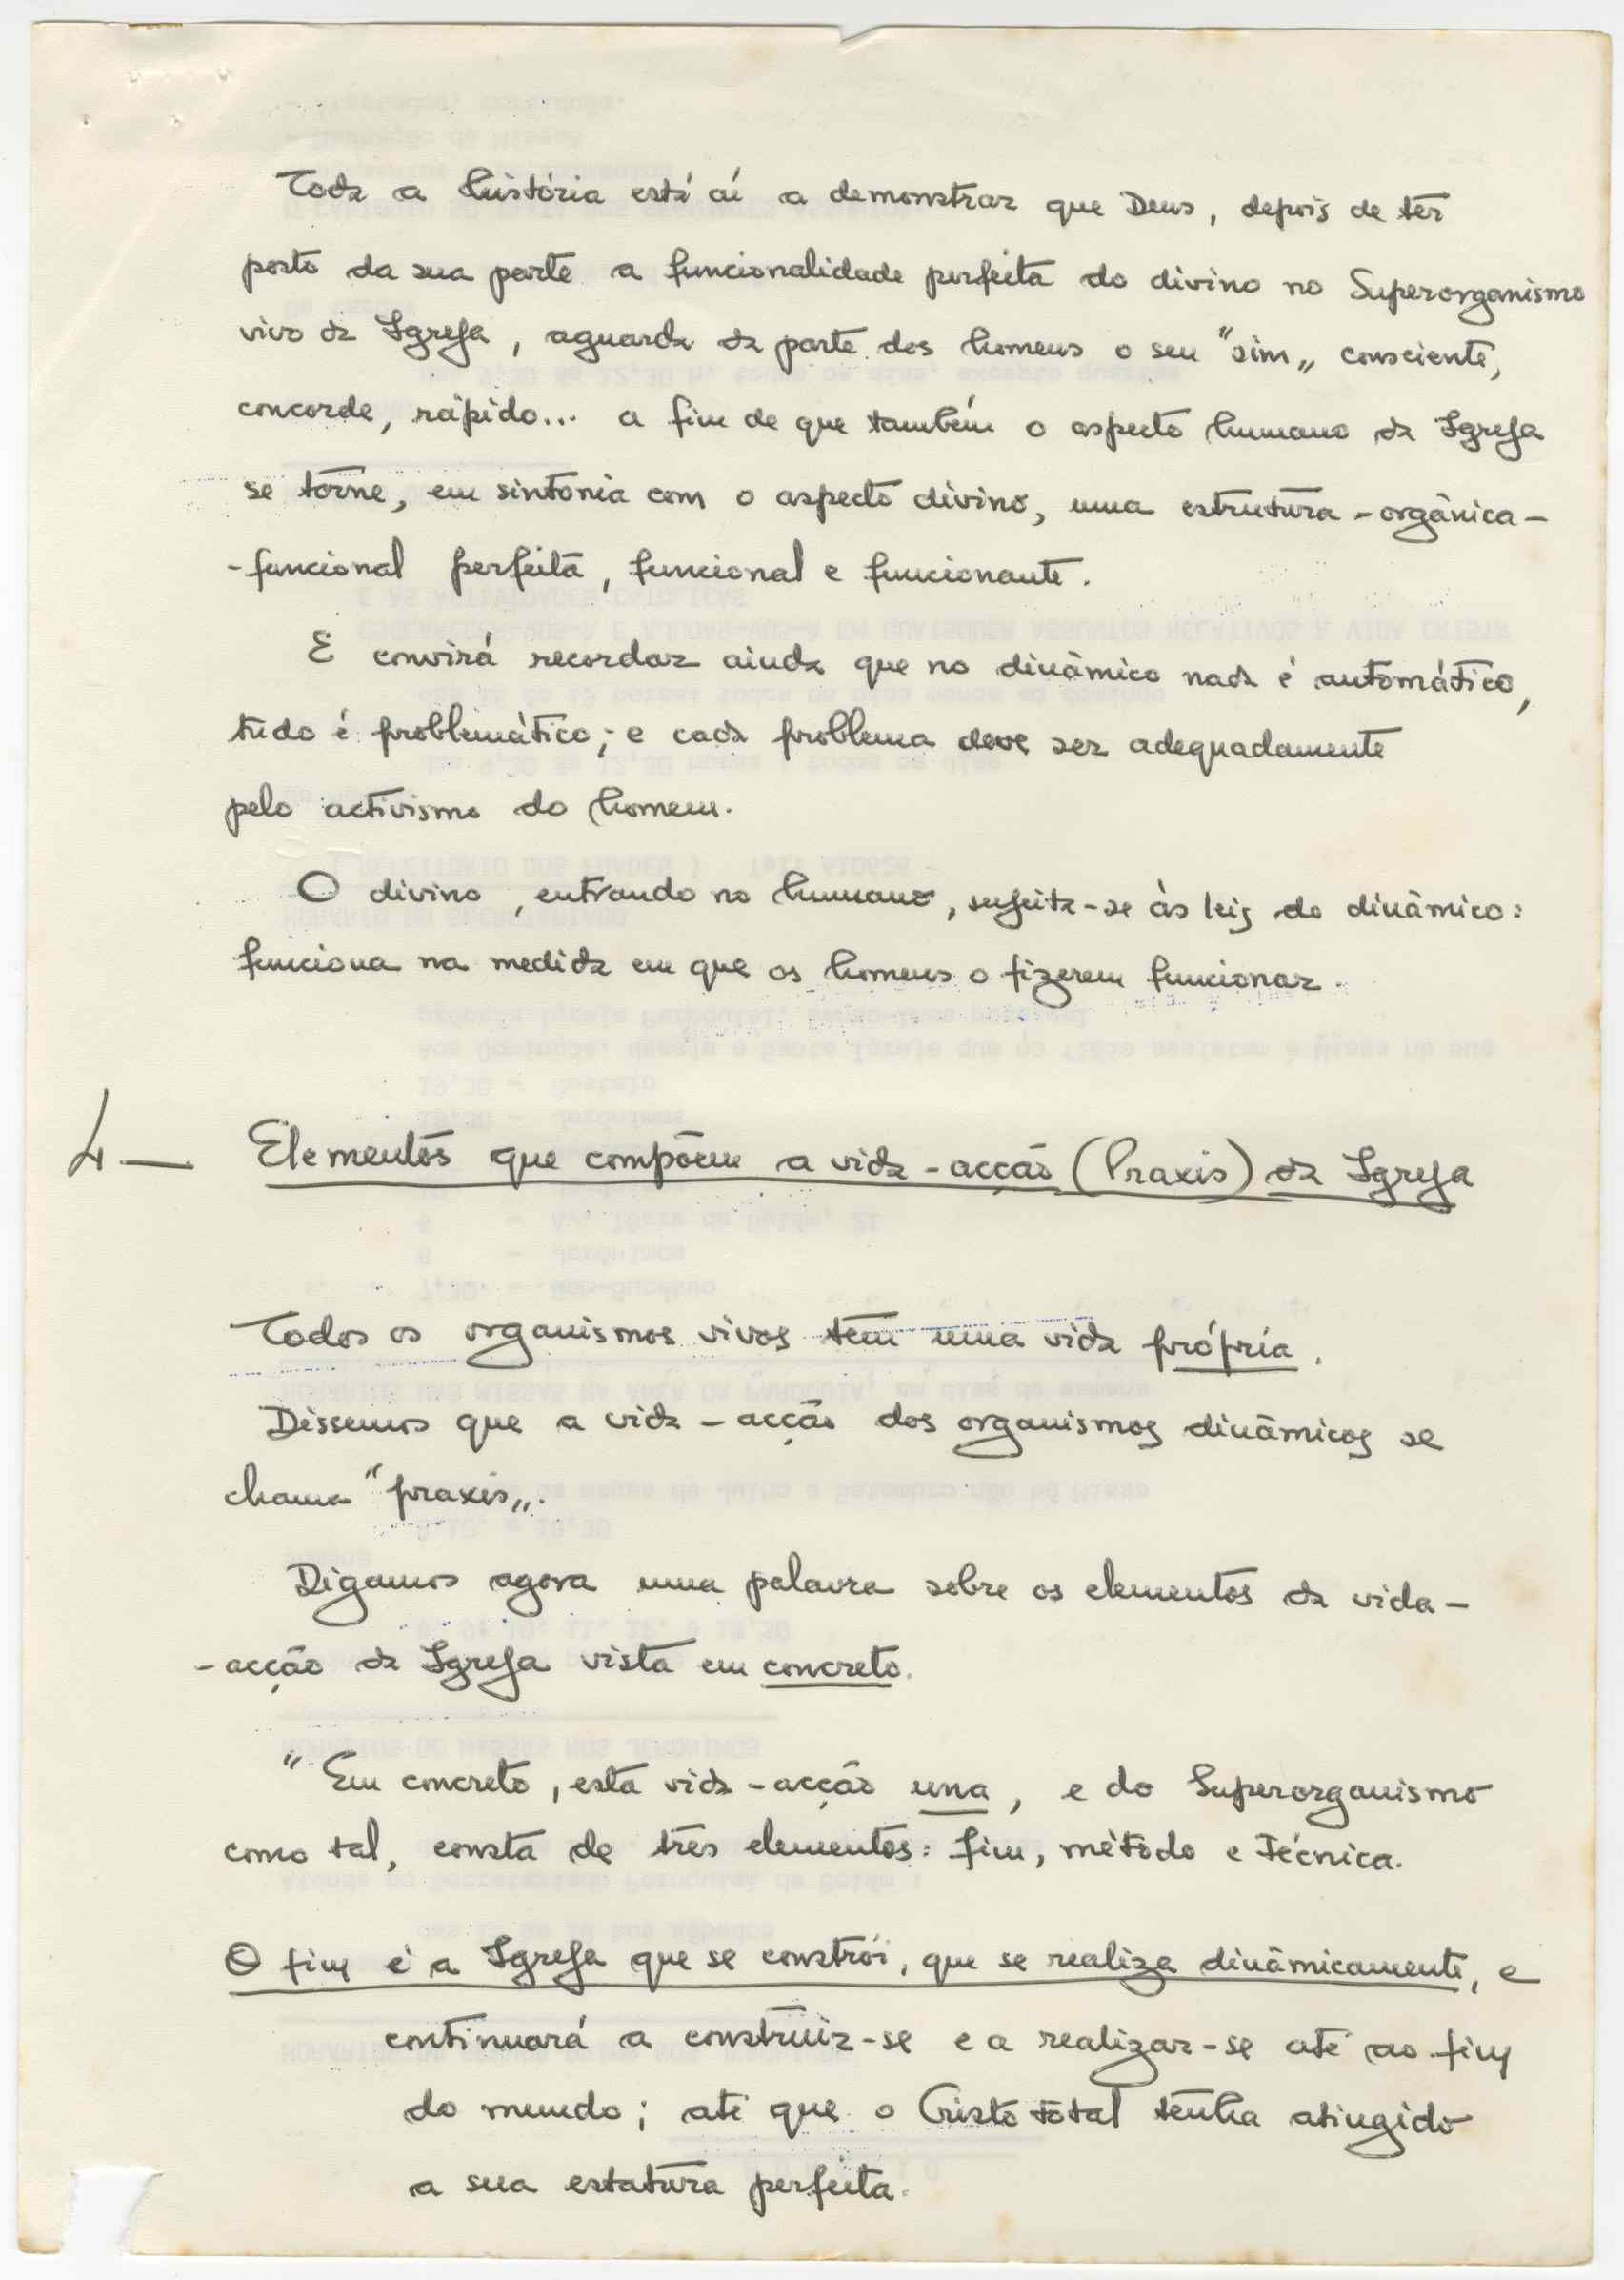 Toda a história está aí a demonstrar que Deus, depois de ter
posto da sua parte a funcionalidade perfeita do divino no Superorganismo
vivo da Igreja, aguarda da parte dos homens o seu "sim„ consciente,
concorde, rápido... a fim de que também o aspecto humano da Igreja
se torne, em sintonia com o aspecto divino, uma estrutura-orgânica-
-funcional perfeita, funcional e funcionante.
E convirá recordar ainda que no dinâmico nada é automático,
tudo é problemático; e cada problema deve ser adequadamente
pelo activismo do homem.
O divino, entrando no humano, sujeita-se às leis do dinâmico:
funciona na medida em que os homens o fizerem funcionar.
4— Elementos que compõem a vida-acção (Praxis) da Igreja
Todos os organismos vivos têm uma vida própria.
Dissemos que a vida-acção dos organismos dinâmicos se
chama "praxis„.
Digamos agora uma palavra sobre os elementos da vida-
-acção da Igreja vista em concreto.
"Em concreto, esta vida-acção una, e do Superorganismo
como tal, consta de três elementos: fim, método e técnica.
O fim é a Igreja que se constrói, que se realiza dinâmicamente, e
continuará a construir-se e a realizar-se até ao fim
do mundo; até que o Cristo total tenha atingido
a sua estatura perfeita.